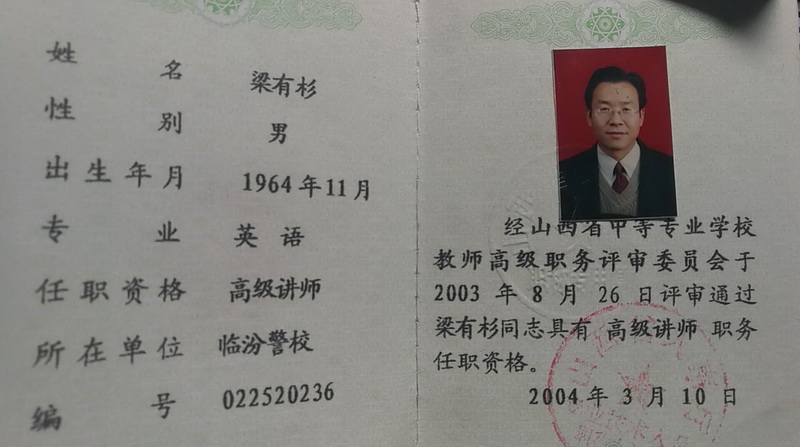 姓 名 梁有杉
性 别 男
出生年月 1964年11月
专 业 英语
任职资格 高级讲师
所在单位 临汾警校
编 号 022520236
经山西省中等专业学校
教师高级职务评审委员会于
2003 年 8 月 26 日评审通过
梁有杉同志具有 高级讲师 职务
任职资格。
2004 年 3 月 10 日